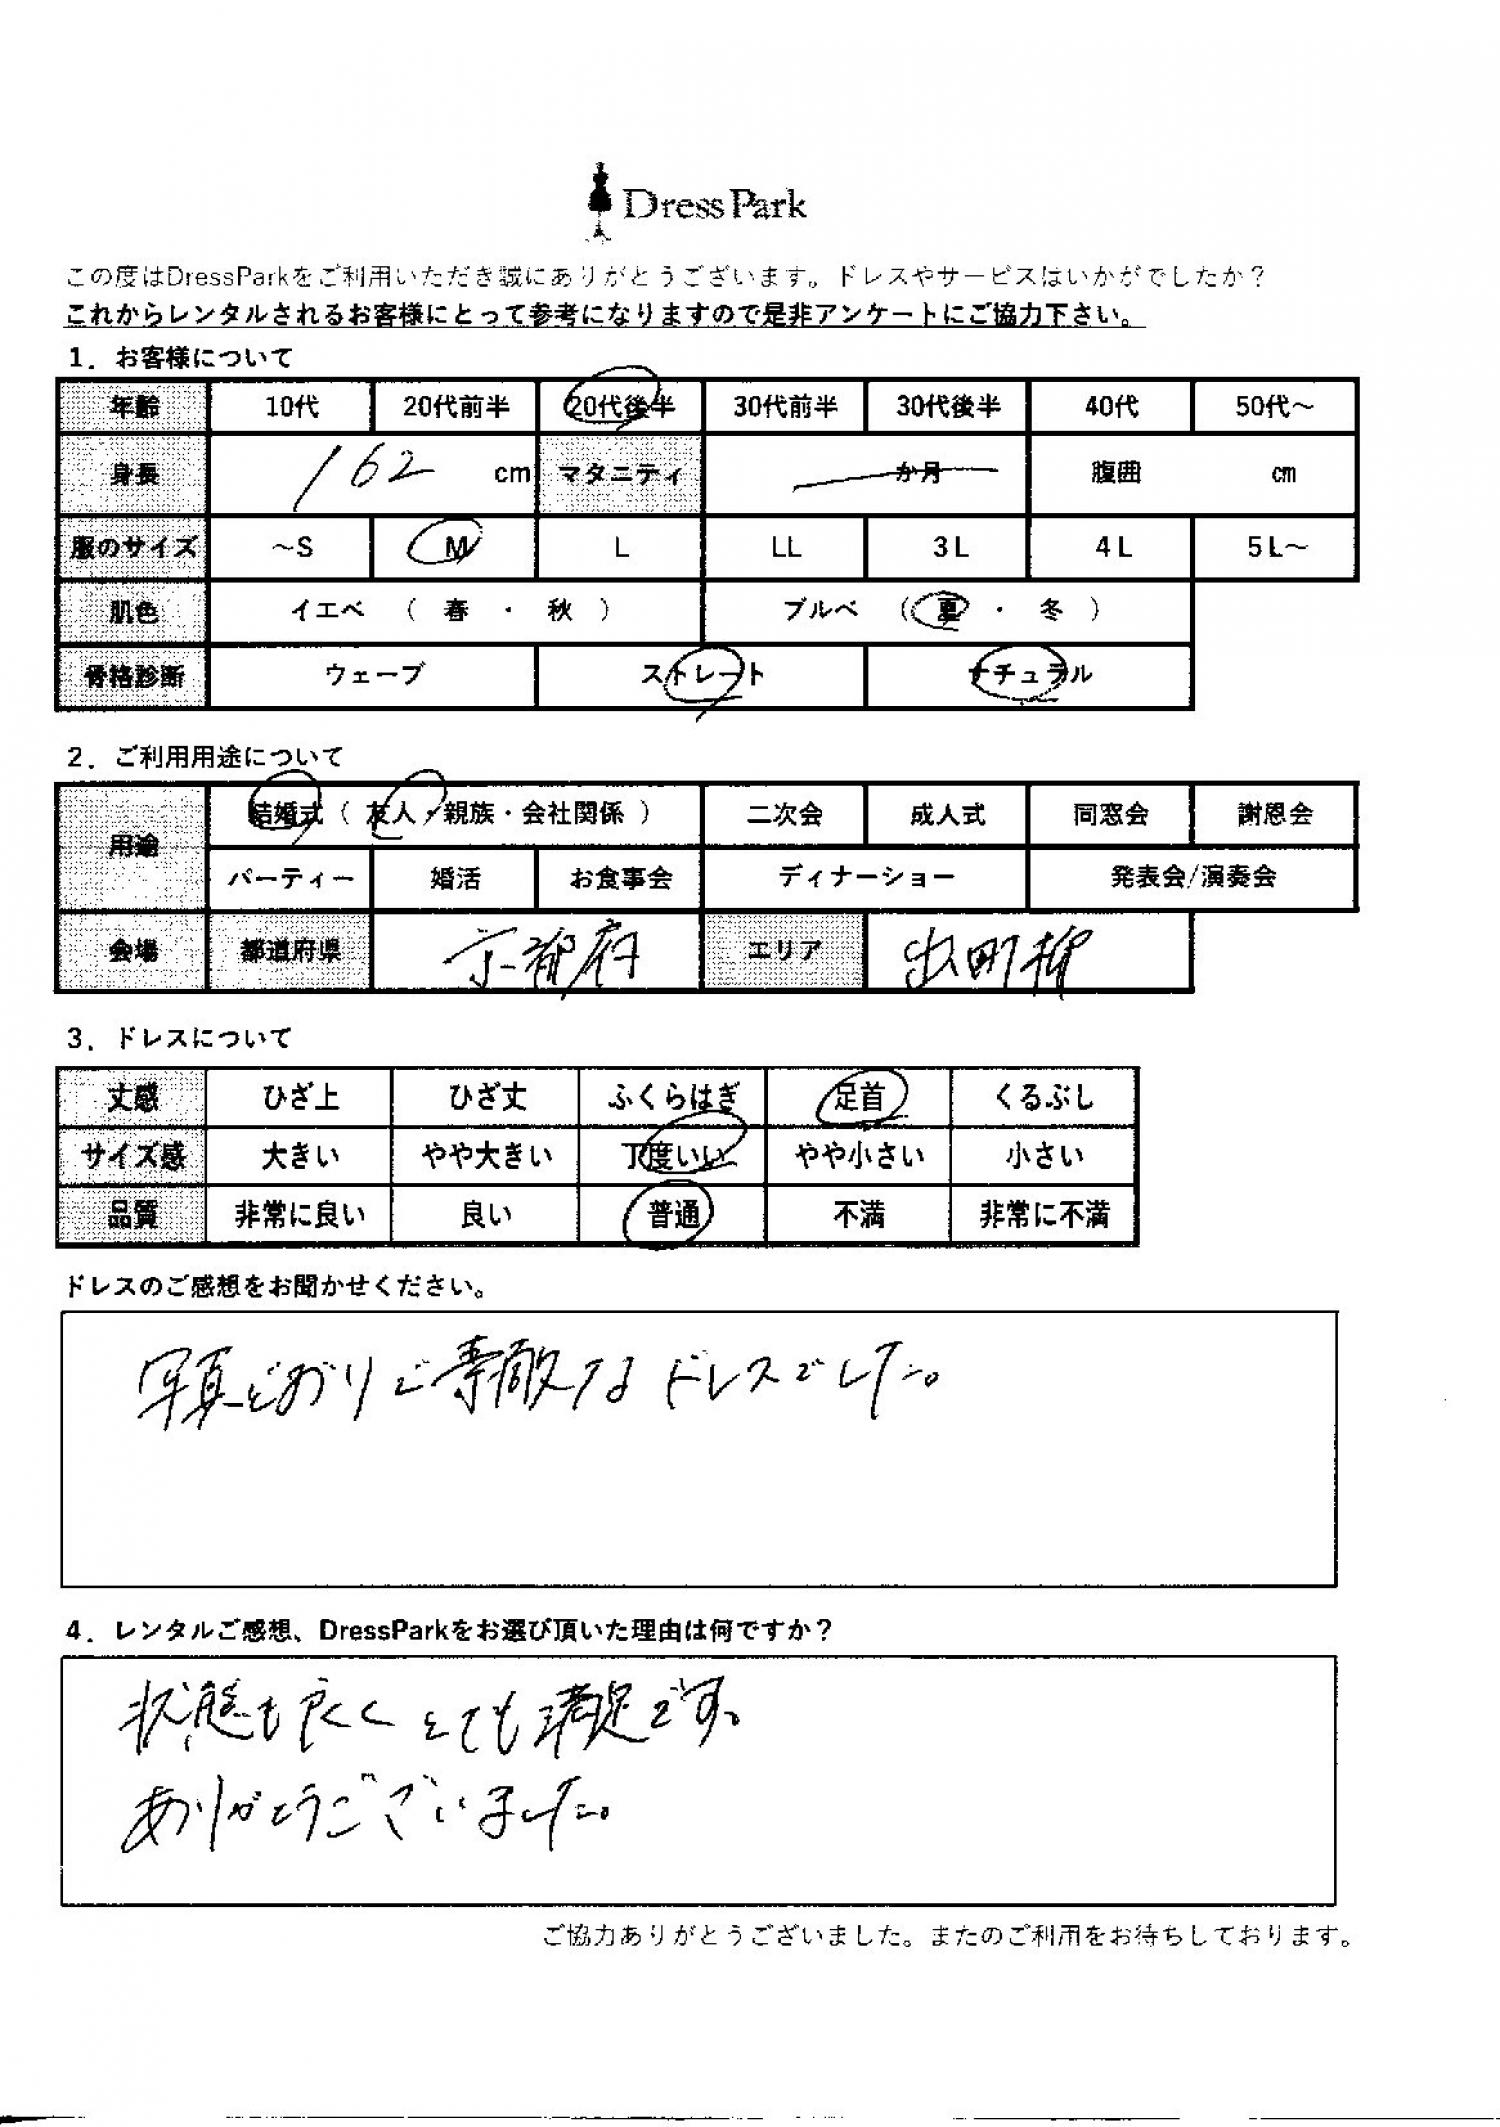 Dress Park
この度はDressParkをご利用いただき誠にありがとうございます。ドレスやサービスはいかがでしたか？
これからレンタルされるお客様にとって参考になりますので是非アンケートにご協力下さい。
1．お客様について
年齢 10代 20代前半 20代後半 30代前半 30代後半 40代 50代～
身長 162 cm マタニティ か月 腹囲 cm
服のサイズ ～S M L LL 3L 4L 5L～
肌色 イエベ （ 春 ・ 秋 ） ブルベ （ 夏 ・ 冬 ）
骨格診断 ウェーブ ストレート ナチュラル
2．ご利用用途について
用途 結婚式（ 友人・親族・会社関係 ） 二次会 成人式 同窓会 謝恩会
パーティー 婚活 お食事会 ディナーショー 発表会/演奏会
会場 都道府県 京都府 エリア 出町柳
3．ドレスについて
丈感 ひざ上 ひざ丈 ふくらはぎ 足首 くるぶし
サイズ感 大きい やや大きい 丁度いい やや小さい 小さい
品質 非常に良い 良い 普通 不満 非常に不満
ドレスのご感想をお聞かせください。
写真どおりで素敵なドレスでした。
4．レンタルご感想、DressParkをお選び頂いた理由は何ですか？
状態も良くとても満足です。
ありがとうございました。
ご協力ありがとうございました。またのご利用をお待ちしております。